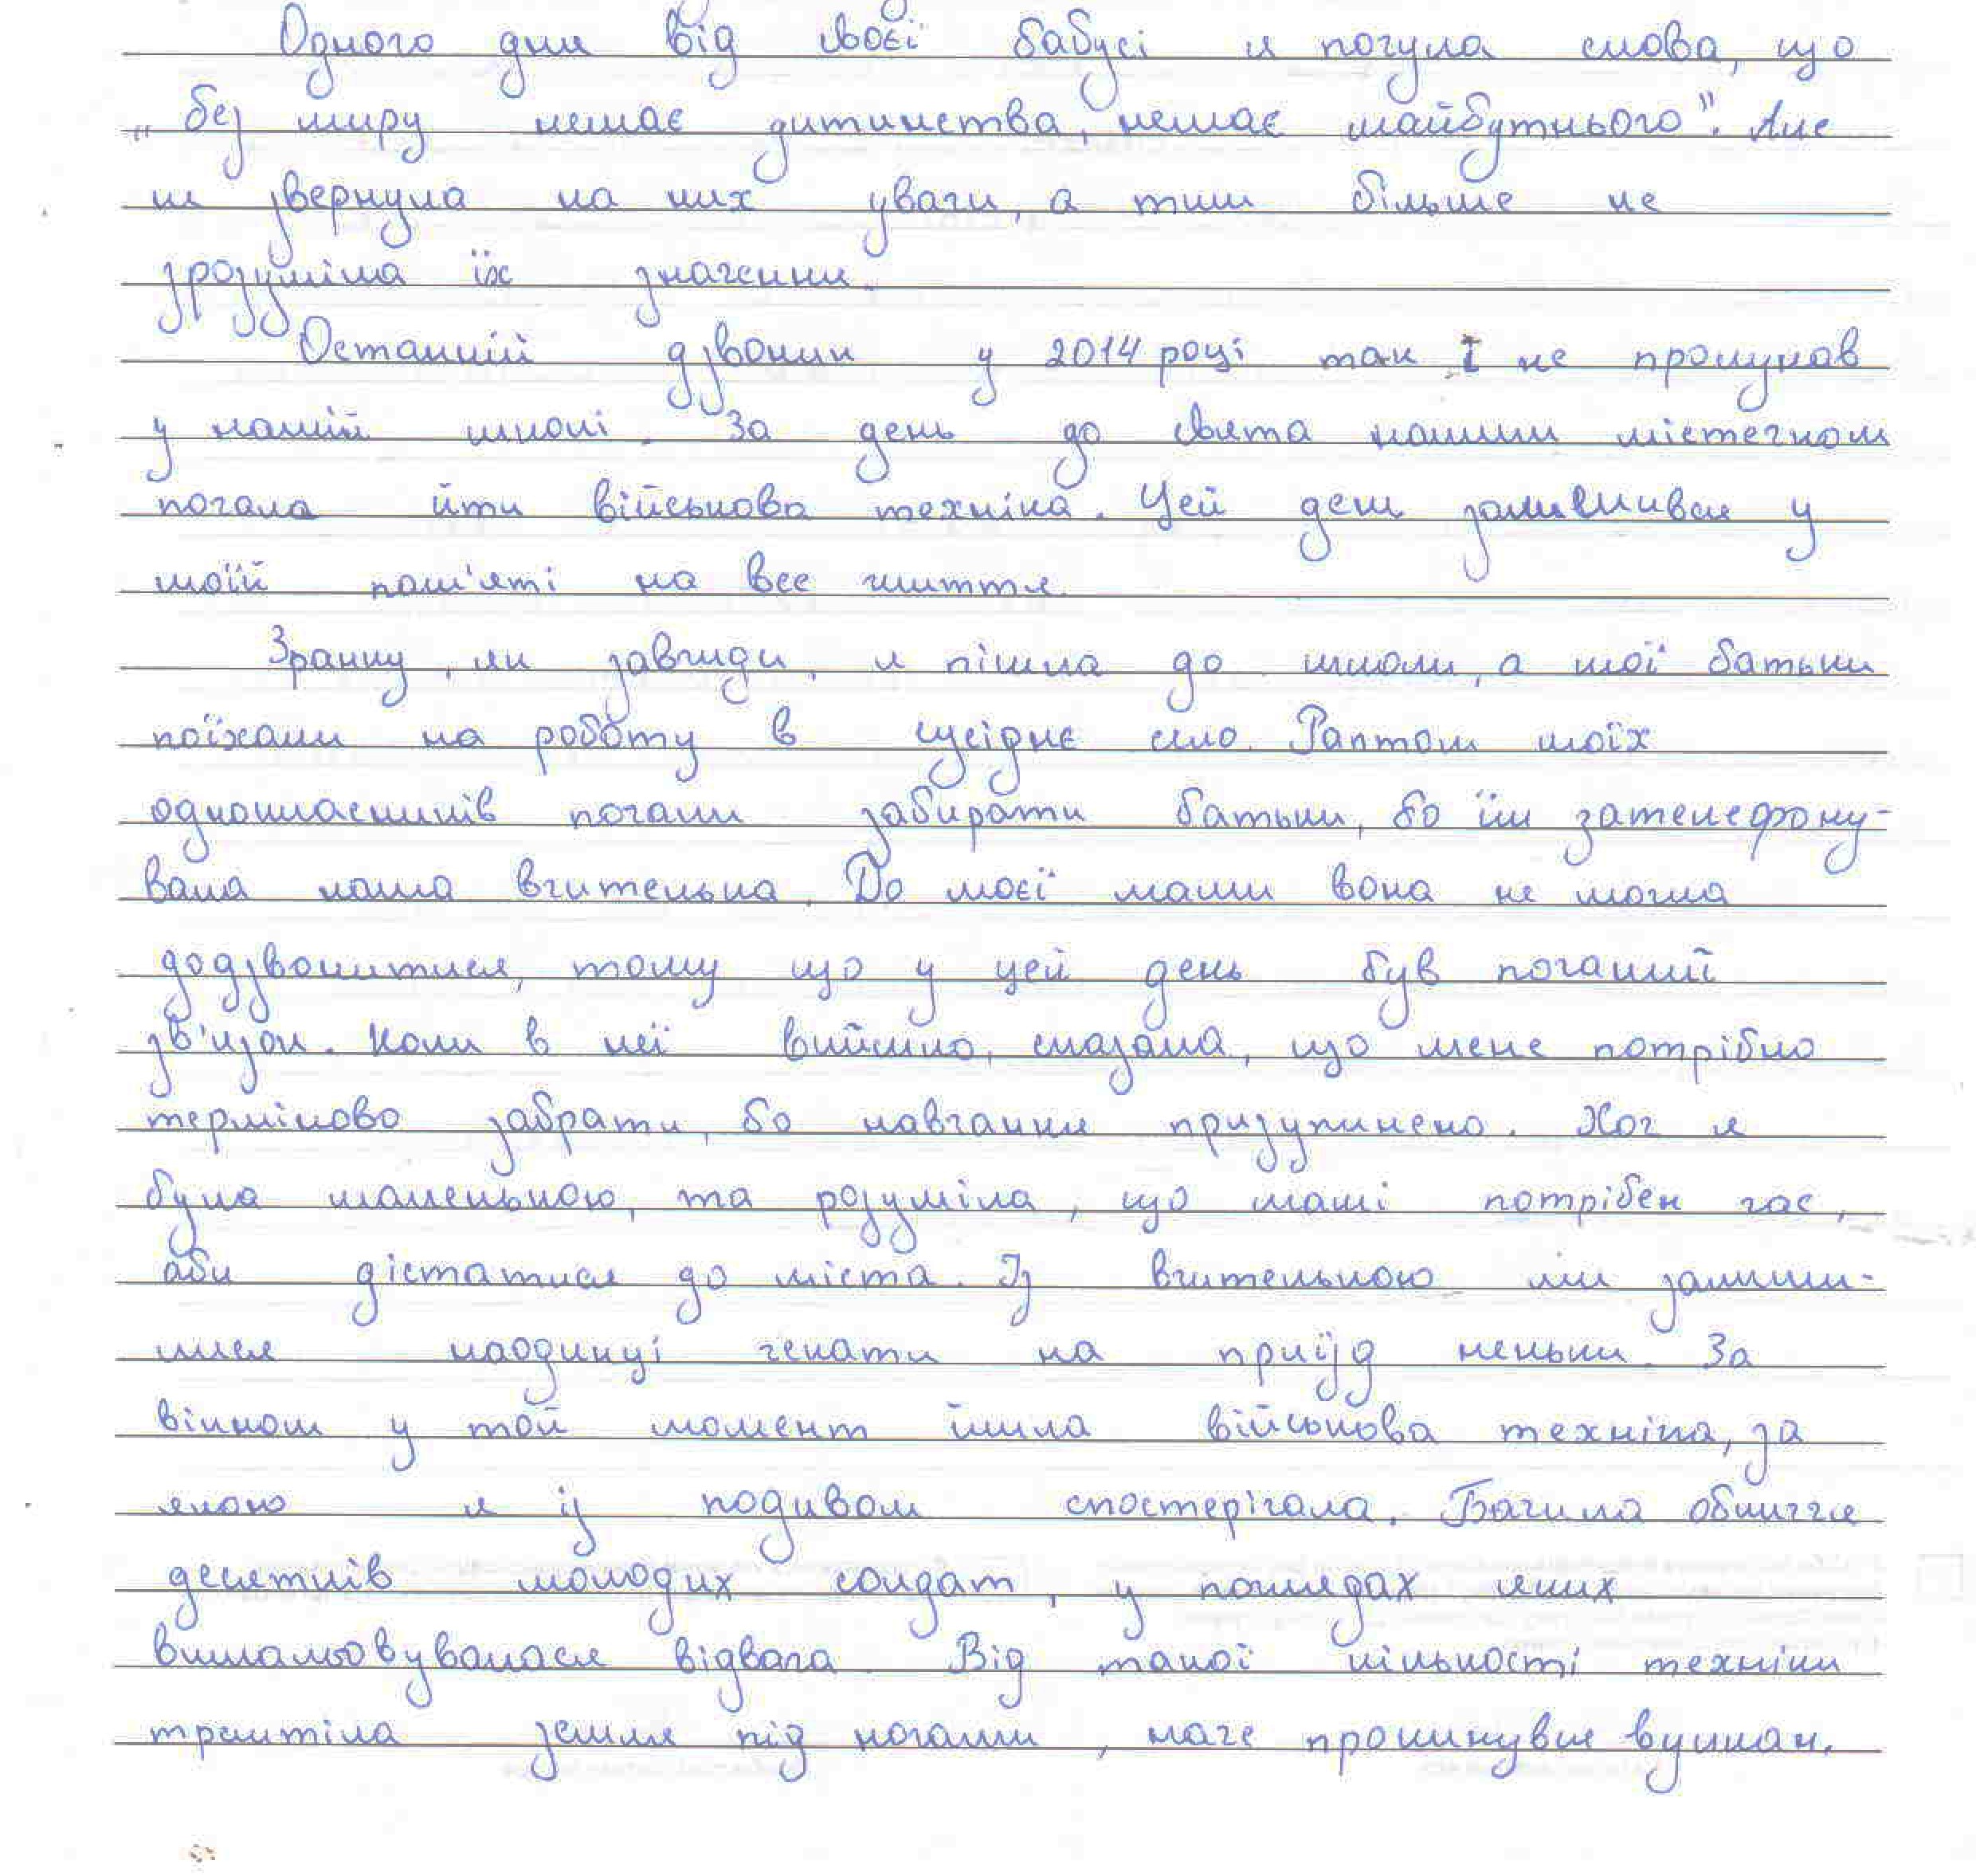 Одного дня від своєї бабусі я почула слова, що
„без миру немає дитинства, немає майбутнього". Але
не звернула на них уваги, а тим більше не
зрозуміла їх значення.
Останній дзвоник у 2014 році так і не пролунав
у нашій школі. За день до свята нашим містечком
почала йти військова техніка. Цей день залишився у
моїй пам'яті на все життя.
Зранку, як завжди, я пішла до школи, а мої батьки
поїхали на роботу в сусіднє село. Раптом моїх
однокласників почали забирати батьки, бо їм зателефону-
вала наша вчителька. До моєї мами вона не могла
додзвонитися, тому що у цей день був поганий
зв'язок. Коли в неї вийшло, сказала, що мене потрібно
терміново забрати, бо навчання призупинено. Хоч я
була маленькою, та розуміла, що мамі потрібен час,
аби дістатися до міста. Із вчителькою ми залиши-
лися наодинці чекати на приїзд неньки. За
вікном у той момент йшла військова техніка, за
якою я із подивом спостерігала. Бачила обличчя
десятків молодих солдат, у поглядах яких
вималовувалася відвага. Від такої кількості техніки
тремтіла земля під ногами, наче прокинувся вулкан.